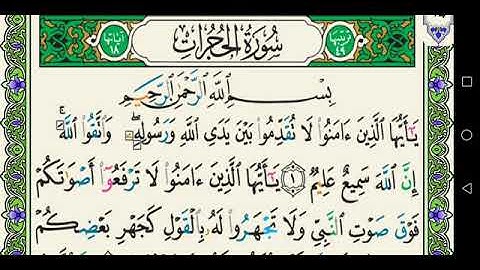 ترتيبها ٤٩ سورة الحجرات آياتها ١٨
بِسْمِ ٱللَّهِ ٱلرَّحْمَٰنِ ٱلرَّحِيمِ
يَٰٓأَيُّهَا ٱلَّذِينَ ءَامَنُوا۟ لَا تُقَدِّمُوا۟ بَيْنَ يَدَىِ ٱللَّهِ وَرَسُولِهِۦ ۖ وَٱتَّقُوا۟ ٱللَّهَ ۚ
إِنَّ ٱللَّهَ سَمِيعٌ عَلِيمٌ ١ يَٰٓأَيُّهَا ٱلَّذِينَ ءَامَنُوا۟ لَا تَرْفَعُوٓا۟ أَصْوَٰتَكُمْ
فَوْقَ صَوْتِ ٱلنَّبِىِّ وَلَا تَجْهَرُوا۟ لَهُۥ بِٱلْقَوْلِ كَجَهْرِ بَعْضِكُمْ